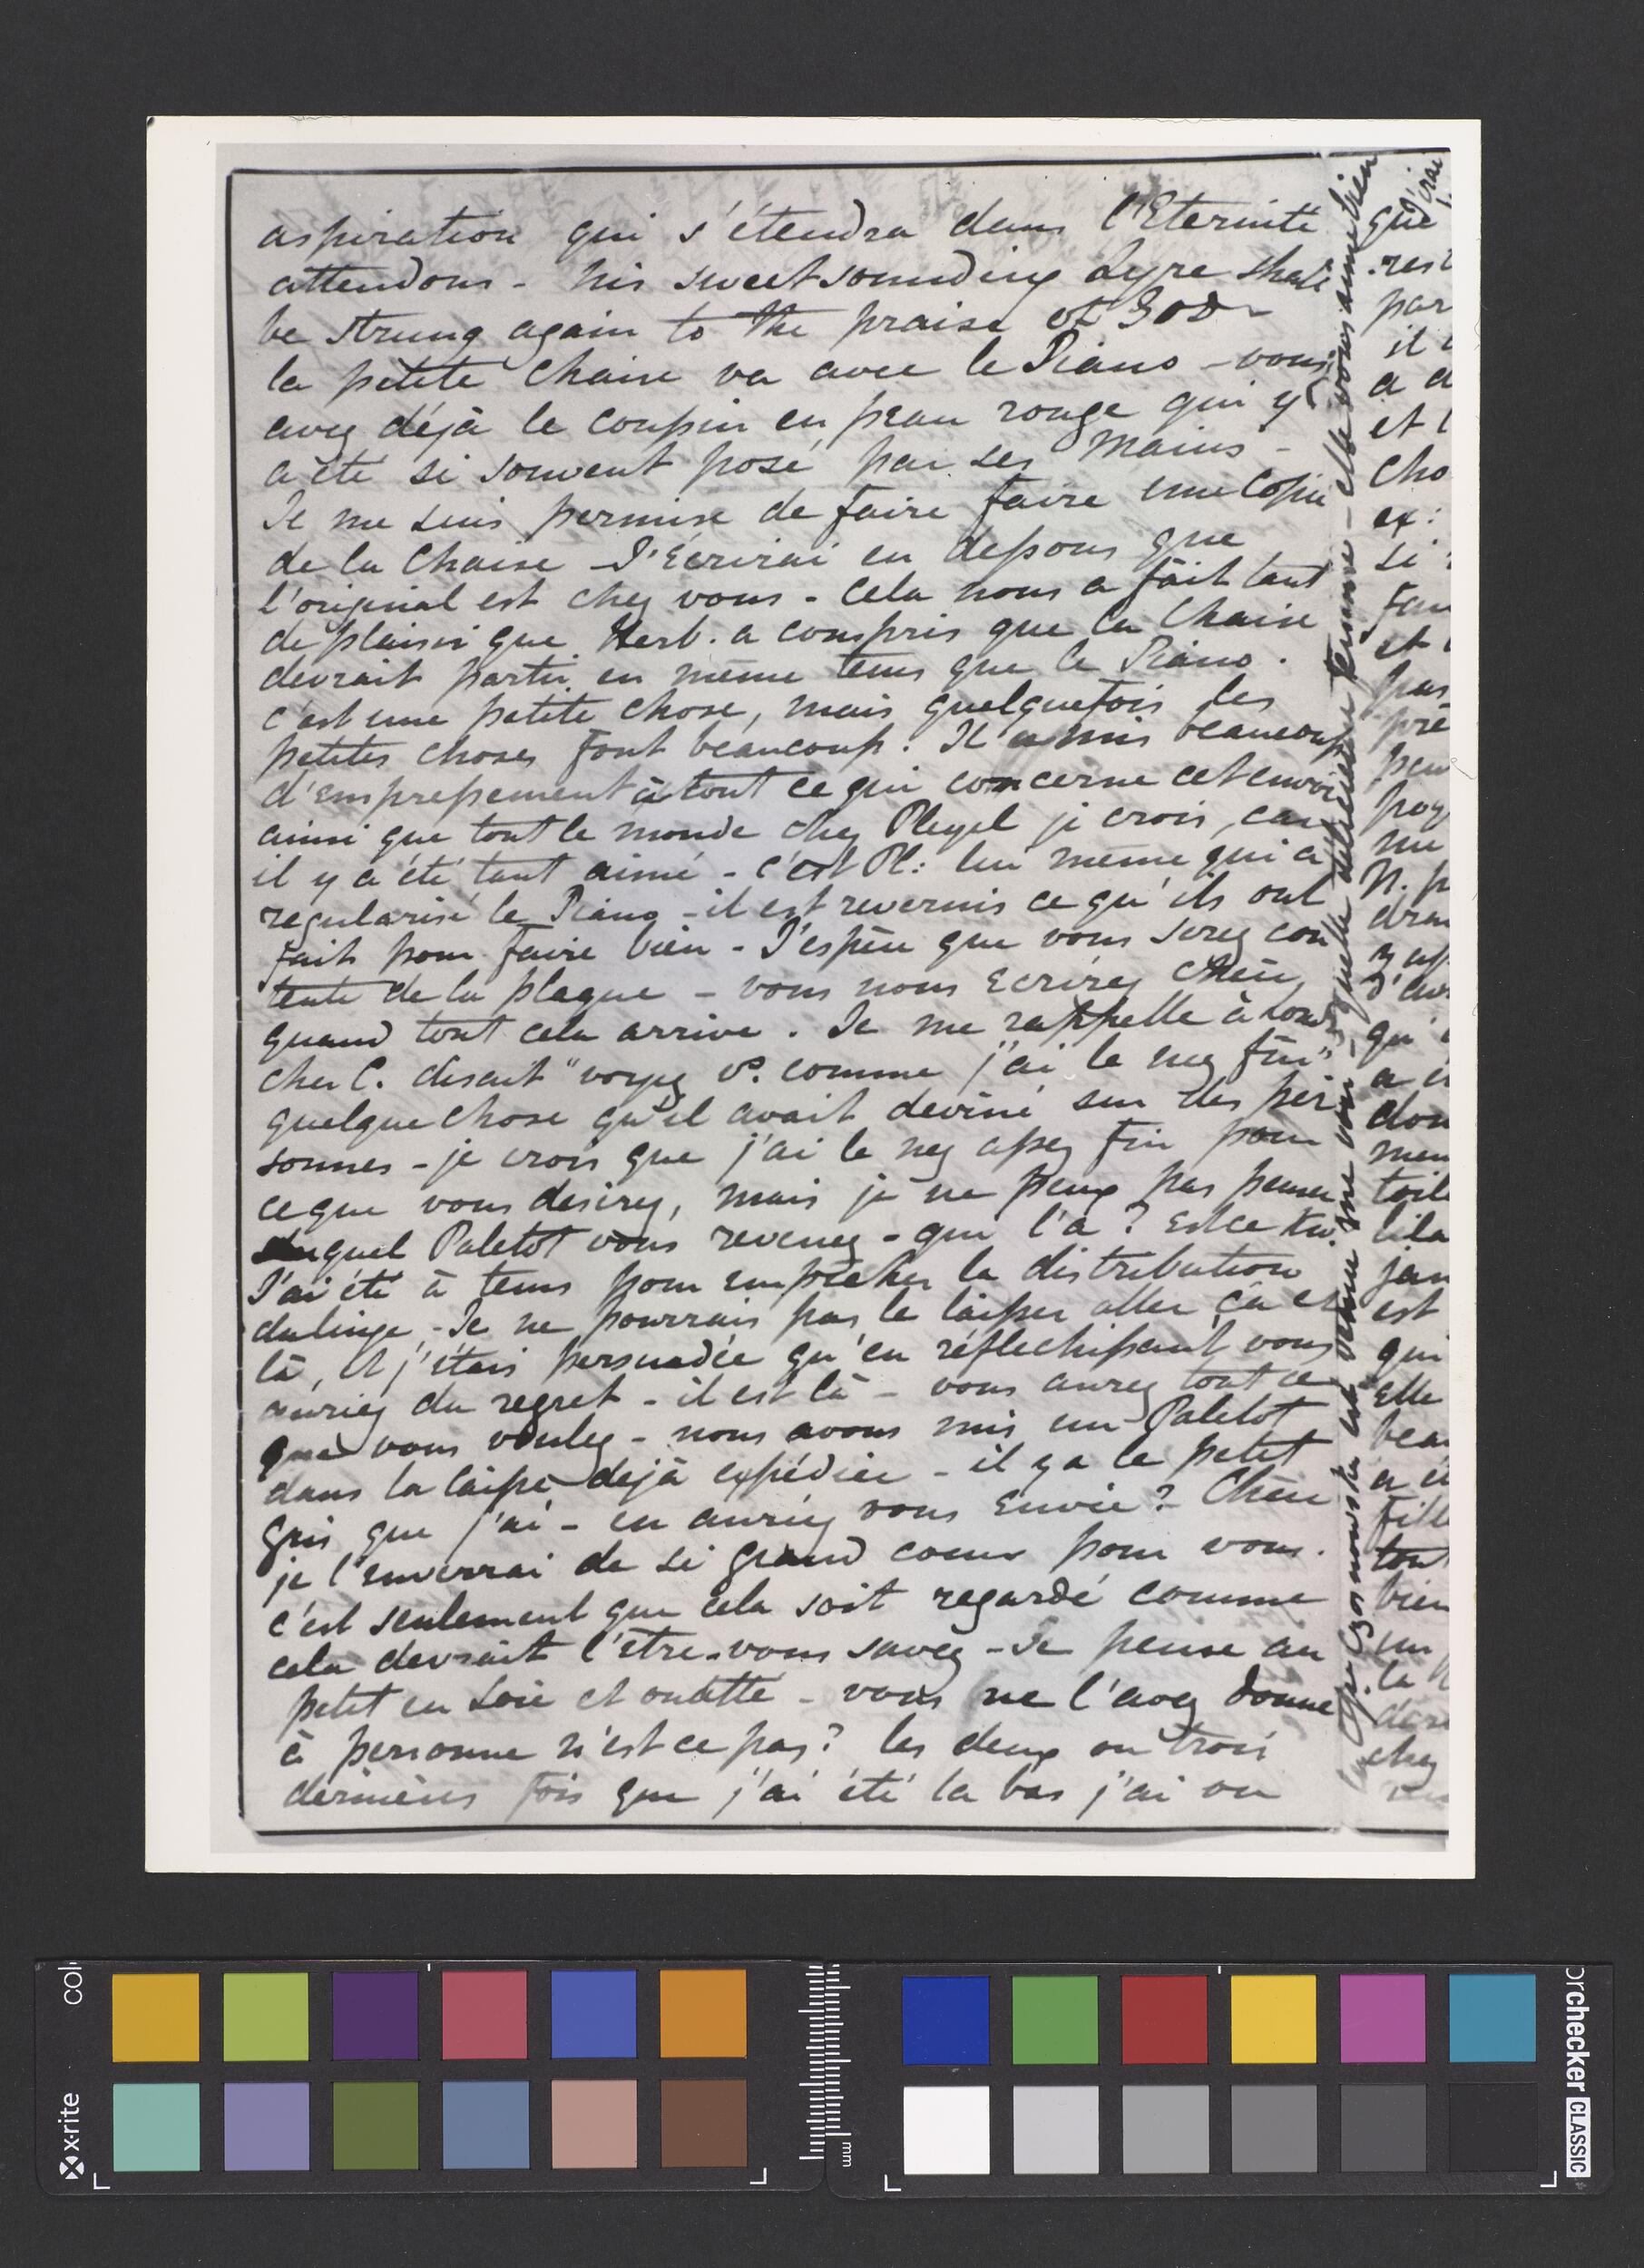 aspiration qui s'étendra dans l'Eternité
attendons - his sweet sounding Lyre shall
be strung again to the praise of God -
la petite Chaise va avec le Piano - vous
avez déjà le coussin en peau rouge qui y
a été si souvent posé par ses Mains -
Je me suis permise de faire faire une Copie
de la Chaise - J'Ecrirai en dessous que
l'original est chez vous - Cela nous a fait tant
de plaisir que Herb. a compris que la Chaise
devrait partir en meme tems que le Piano.
c'est une petite chose, mais quelquefois les
petites choses font beaucoup. Il a mis beaucoup
d'empressement à tout ce qui concerne cet envoi
ainsi que tout le monde chez Pleyel je crois, car
il y a été tant aimé - c'est Pl: lui meme qui a
regularisé le Piano - il est revernis ce qu'ils ont
fait pour faire bien - J'espère que vous serez con
tente de la plaque - vous nous Ecrirez Chère
quand tout cela arrive. Je me rappelle à Lond
cher C. disait "voyez vs. comme j'ai le nez fin"
quelque chose qu'il avait deviné sur des per
sonnes - je crois que j'ai le nez assez fin pour
ce que vous desirez, mais je ne peux pas penser
duquel Paletot vous revenez - qui l'a? Est ce Kw.
J'ai été à tems pour empêcher la distribution
du linge - Je ne pourrais pas le laisser aller çà et
là, et j'étais persuadée qu'en réflechissant vous
auriez du regret - il est là - vous aurez tout ce
que vous voulez - nous avons mis un Paletot
dans la caisse dejà expédiée - il y a le petit
gris que j'ai - en auriez vous Envie? - Chère
je l'enverrai de si grand coeur pour vous.
c'est seulement que cela soit regardé comme
cela devrait l'être - vous savez - Je pense au
petit en Soie et ouatte - vous ne l'avez donné
à personne n'est ce pas? les deux ou trois
dernières fois que j'ai été la bas j'ai vu
que
rest
par
il
a
et
Cho
ex:
si
et
pas
pré
pay
me
N. p
qu'
a
don
men
toil
lila
jam
est
qui
Elle
bea
fille
tout
bien
un
le
chez